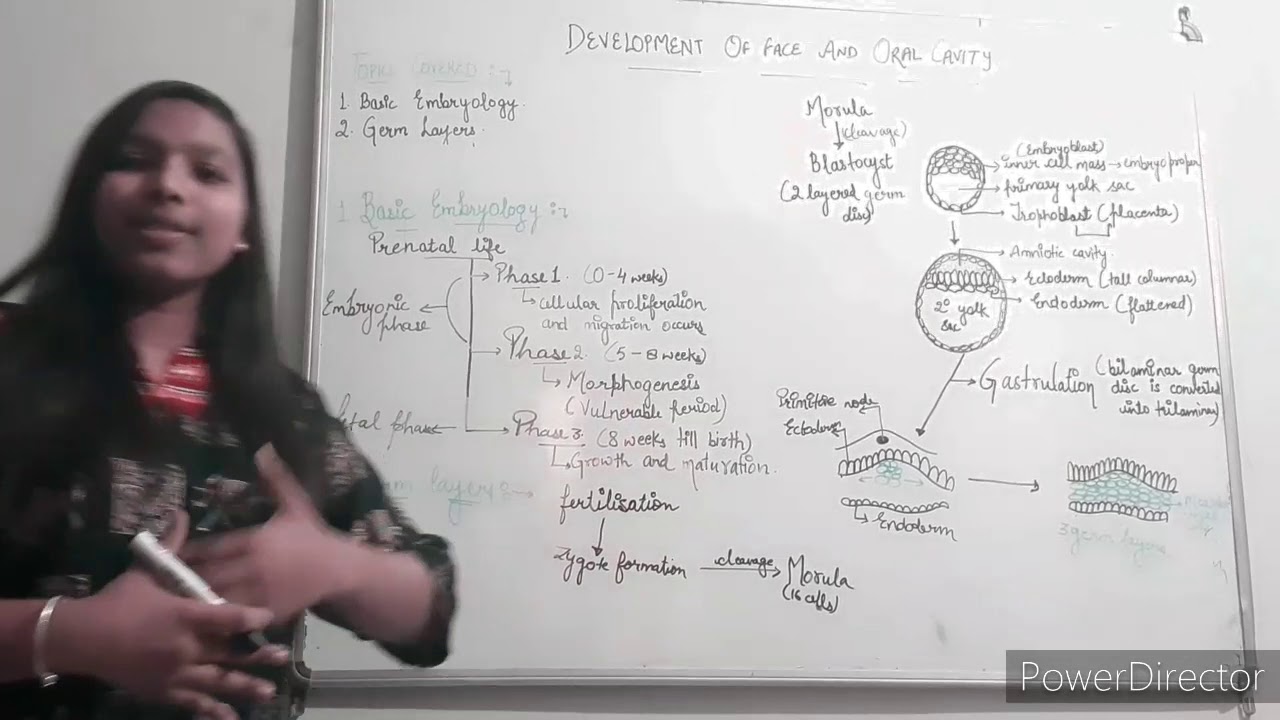 DEVELOPMENT OF FACE AND ORAL CAVITY
TOPICS COVERED :-
1. Basic Embryology.
2. Germ Layers.
1. Basic Embryology :-
Prenatal life
Phase 1. (0-4 weeks)
cellular proliferation
and migration occurs
Embryonic
phase
Phase 2. (5-8 weeks)
Morphogenesis
(Vulnerable Period)
Phase 3. (8 weeks till birth)
Growth and maturation.
phase
layers :-
fertilisation
Zygote formation
cleavage
Morula
(16 cells)
Morula
(cleavage)
Blastocyst
(2 layered germ
disc)
(Embryoblast)
inner cell mass → embryo proper
primary yolk sac
Trophoblast (placenta)
Amniotic cavity.
Ectoderm (tall columnar)
Endoderm (flattened)
2° yolk
sac
Gastrulation (bilaminar germ
disc is converted
into trilaminar)
Primitive node
Ectoderm
Endoderm
3 germ layers
PowerDirector